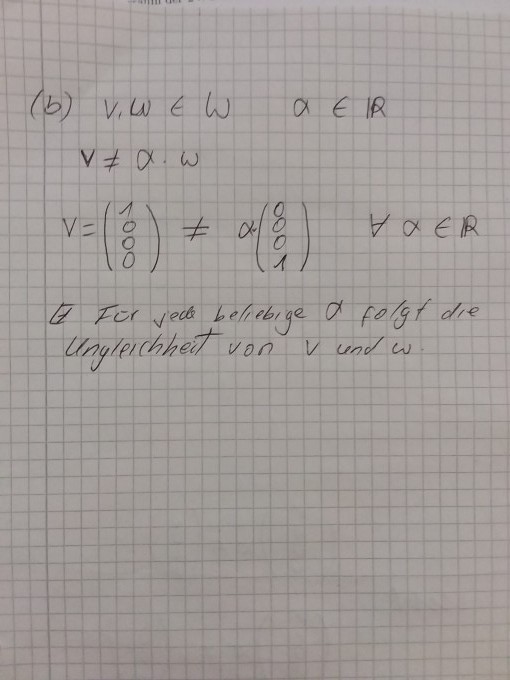 (b) v, w ∈ W α ∈ ℝ
v ≠ α · w
v = (1 0 0 0) ≠ α · (0 0 0 1) ∀ α ∈ ℝ
Für jede beliebige α folgt die
Ungleichheit von v und w.